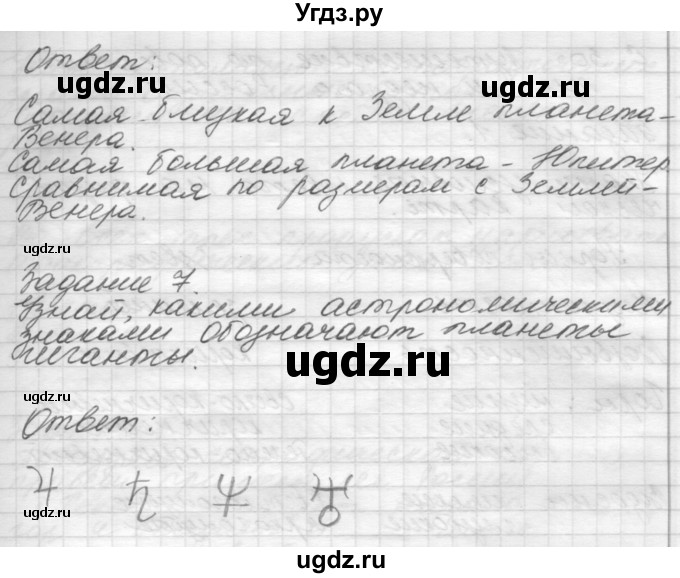 Угдз.ру
Ответ:
ugdz.ru
ugdz.ru
Самая близкая к Земле планета-
Венера.
Самая большая планета - Юпитер
Сравнимая по размерам с Землей-
Венера.
ugdz.ru
Задание 7.
Узнай, какими астрономическими
знаками обозначают планеты
гиганты.
ugdz.ru
Ответ:
♃ ♄ ♆ ♅
ugdz.ru
ugdz.ru